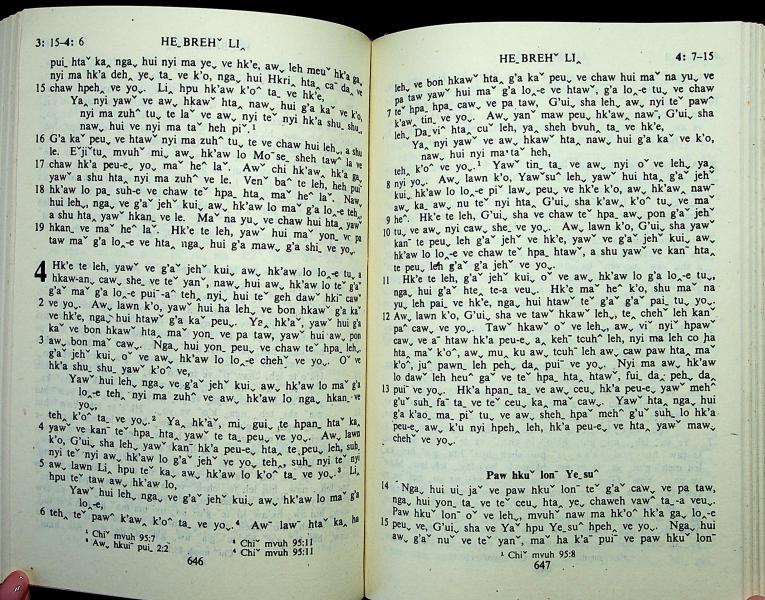 3: 15-4: 6
HE_ BREHˇ LI‸
pui_ htaˇ ka‸ nga˯ hui nyi ma ye˯ ve hk'e, aw˯ leh meuˇ hk'a ga˯
nyi ma hk'a deh‸ ye˯ ta_ ve k'o, nga˯ hui Hkri‸ hta‸ ca¯ da‸ ve
15 chaw hpeh‸ ve yo˯. Li‸ hpu hk'aw k'o^ ta_ ve hk'e,
Ya‸ nyi yawˇ ve aw˯ hkawˇ hta‸ naw˯ hui g'a kaˇ ve k'o,
nyi ma zuh^ tu˯ te laˇ ve aw˯ nyi teˇ nyi hk'a shu_ shu_
naw˯ hui ve nyi ma taˇ heh piˇ.¹
16 G'a kaˇ peu˯ ve htawˇ nyi ma zuh^ tu˯ te ve chaw hui leh˯, a shu
le. E'ji'tu‸ mvuhˇ mi˯ aw˯ hk'aw lo Moˇse_ sheh tawˆ la ve
17 chaw hk'a peu-e˯ yo˯ maˇ he^ laˇ. Awˇ chi hk'aw‸ hk'a ga˯
yawˇ a shu hta‸ nyi ma zuh^ ve le. Venˇ baˆ te leh, heh pui¯
18 hk'aw lo pa_ suh-e ve chaw teˇ hpa‸ hta‸ maˇ he^ laˇ. Naw˯
hui leh˯, nga˯ ve g'aˇ jehˇ kui˯ aw˯ hk'aw lo maˇ g'a lo‸-e teh‸
a shu hta‸ yawˇ hkan˯ ve le. Maˇ na yu˯ ve chaw hui hta‸ yawˇ
19 hkan˯ ve maˇ he^ laˇ. Hk'e te leh, yawˇ hui maˇ yon˯ ve pa
taw maˇ g'a lo‸-e ve hta‸ nga˯ hui g'a maw˯ g'a shi˯ ve yo˯.
4 Hk'e te leh, yawˇ ve g'aˇ jehˇ kui˯ aw˯ hk'aw lo lo‸-e tu˯ a
hkaw-an˯ caw˯ she˯ ve teˇ yanˇ, naw˯ hui aw˯ hk'aw lo teˇ g'aˇ
g'aˇ maˇ g'a lo‸-e pui¯-aˆ teh‸ nyi˯ hui teˇ geh dawˇ hki¯ cawˇ
2 ve yo˯. Aw˯ lawn k'o, yawˇ hui ha leh˯ ve bon hkawˇ g'a kaˇ
ve hk'e, nga˯ hui htawˇ g'a kaˇ peu˯. Ya‸ hk'aˇ, yawˇ hui g'a
kaˇ ve bon hkawˇ hta‸ maˇ yon˯ ve pa taw, yawˇ hui aw˯ pon
3 aw˯ bon maˇ caw˯. Nga˯ hui yon˯ peu˯ ve chaw teˇ hpa‸ leh˯
g'aˇ jehˇ kui˯ oˇ ve aw˯ hk'aw lo lo‸-e chehˇ ve yo˯. Oˇ ve
hk'a shu_ shu_ yawˇ k'o^ ve,
Yawˇ hui leh˯ nga˯ ve g'aˇ jehˇ kui˯ aw˯ hk'aw lo maˇ g'a
lo‸-e teh‸ nyi ma zuh^ ve aw˯ hk'aw lo nga˯ hkan˯ ve
yo˯,
teh‸ k'o^ ta_ ve yo˯.² Ya‸ hk'aˇ, mi˯ gui_ te hpan_ htaˇ ka_
4 yawˇ ve kanˇ teˇ hpa‸ hta‸ yawˇ te ta_ peu˯ ve yo˯. Aw˯ lawn
k'o, G'ui˯ sha leh˯ yawˇ kanˇ hk'a peu-e˯ hta‸ te˯ peu˯ leh, suh˯
nyi teˇ nyi aw˯ hk'aw lo g'aˇ jehˇ ve yo˯ teh‸, suh˯ nyi teˇ nyi
5 aw˯ lawn Li‸ hpu teˇ ka˯ aw˯ hk'aw lo k'o^ ta_ ve yo˯.³ Li‸
hpu teˇ taw aw˯ hk'aw lo,
Yawˇ hui leh˯ nga˯ ve g'aˇ jehˇ kui˯ aw˯ hk'aw lo maˇ g'a
lo‸-e,
6 teh‸ teˇ pawˆ k'aw‸ k'o^ ta_ ve yo˯.⁴ Awˇ lawˇ htaˇ ka‸ ha
¹ Chiˇ mvuh 95:7
² Chiˇ mvuh 95:11
³ Aw˯ hkuiˇ pui_ 2:2
⁴ Chiˇ mvuh 95:11
646
HE_ BREHˇ LI‸
4: 7-15
leh˯ ve bon hkawˇ hta‸ g'a kaˇ peu˯ ve chaw hui maˇ na yu˯ ve
pa taw yawˇ hui maˇ g'a lo‸-e ve htawˇ, g'a lo‸-e tu˯ ve chaw
7 teˇ hpa‸ hpa‸ caw˯ ve pa taw, G'ui˯ sha leh˯ aw˯ nyi teˇ pawˆ
k'aw‸ tin_ ve yo˯. Aw˯ yanˇ maw peu˯ hk'aw‸ nawˇ, G'ui˯ sha
leh˯ Da˯viˆ hta‸ cuˇ leh, ya‸ sheh bvuh‸ ta_ ve hk'e,
Ya‸ nyi yawˇ ve aw˯ hkawˇ hta‸ naw˯ hui g'a kaˇ ve k'o,
naw˯ hui nyi ma taˇ heh,
teh‸ k'o^ ve yo˯.¹ Yawˇ tin_ ta_ ve aw˯ nyi oˇ ve leh˯ ya‸
8 nyi yo˯. Aw˯ lawn k'o, Yawˇsuˆ leh˯ yawˇ hui hta‸ g'aˇ jehˇ
kui˯ hk'aw lo lo‸-e piˇ law˯ peu˯ ve hk'e k'o, aw˯ hk'aw‸ nawˇ
aw˯ ka‸ aw˯ nu teˇ nyi hta‸ G'ui˯ sha k'aw‸ k'o^ tu˯ ve maˇ
9 he^. Hk'e te leh, G'ui˯ sha ve chaw teˇ hpa‸ aw˯ pon g'aˇ jehˇ
10 tu˯ ve aw˯ nyi caw˯ she˯ ve yo˯. Aw˯ lawn k'o, G'ui˯ sha yawˇ
kan¯ te peu˯ leh g'aˇ jehˇ ve hk'e, yawˇ ve g'aˇ jehˇ kui˯ aw˯
hk'aw lo lo‸-e ve chaw teˇ hpa‸ htawˇ, a shu yawˇ ve kanˇ hta‸
te peu˯ leh g'aˇ g'a jehˇ ve yo˯.
11 Hk'e te leh, g'aˇ jehˇ kui˯ oˇ ve aw˯ hk'aw lo g'a lo‸-e tu˯,
nga˯ hui g'aˇ hte˯ te-a veu˯. Hk'e maˇ heˆ k'o, shu maˇ na
yu˯ leh pai_ ve hk'e, nga˯ hui htawˇ teˇ g'aˇ g'aˇ pai_ tu˯ yo˯.
12 Aw˯ lawn k'o, G'ui˯ sha ve tawˇ hkawˇ leh˯, te‸ chehˇ leh kanˇ
paˆ caw˯ ve yo˯. Tawˇ hkawˇ oˇ ve leh˯, aw˯ viˇ nyiˇ hpawˇ
caw˯ ve aˉ htawˇ hk'a peu-e˯ a‸ kehˉ tcuh^ leh, nyi ma leh co‸ ha
hta‸ maˇ k'o^, aw˯ mu_ ku aw˯ tcuhˉ leh aw˯ caw paw hta‸ maˇ
k'o^, juˆ pawn_ leh peh˯ da‸ puiˉ ve yo˯. Nyi ma aw˯ hk'aw
lo dawˇ leh heu^ gaˇ ve teˇ hpa‸ hta‸ htawˇ, fui_ da‸ peh˯ da‸
13 puiˉ ve yo˯. Hk'a hpan_ ta_ ve aw˯ ceu˯ hk'a peu-e˯ yawˇ mehˆ
g'uˇ suh_ faˆ ta_ ve teˇ ceu˯ ka‸ maˇ caw˯. Yawˇ hta‸ nga˯ hui
g'a k'ao_ ma_ piˇ tu˯ ve aw˯ sheh_ hpaˇ mehˆ g'uˇ suh_ lo hk'a
peu-e˯ aw˯ k'u nyi hpeh‸ leh, hk'a peu-e˯ ve hta‸ yawˇ maw˯
chehˇ ve yo˯.
Paw hkuˇ lonˉ Ye_suˆ
14 Nga˯ hui ui_ jaˇ ve paw hkuˇ lonˉ teˇ g'aˇ caw˯ ve pa taw,
nga˯ hui yon_ ta_ ve teˇ ceu˯ hta‸ ye˯ chaweh vawˆ ta_-a veu˯.
Paw hkuˇ lonˉ oˇ ve leh˯, mvuhˇ naw ma hk'oˆ hk'a ga˯ lo‸-e
15 peu˯ ve, G'ui˯ sha ve Yaˇ hpu Ye_suˆ hpeh‸ ve yo˯. Nga˯ hui
aw˯ g'aˇ nuˇ ve teˇ yanˇ, maˇ ha k'aˉ puiˉ ve paw hkuˇ lonˉ
¹ Chiˇ mvuh 95:8
647